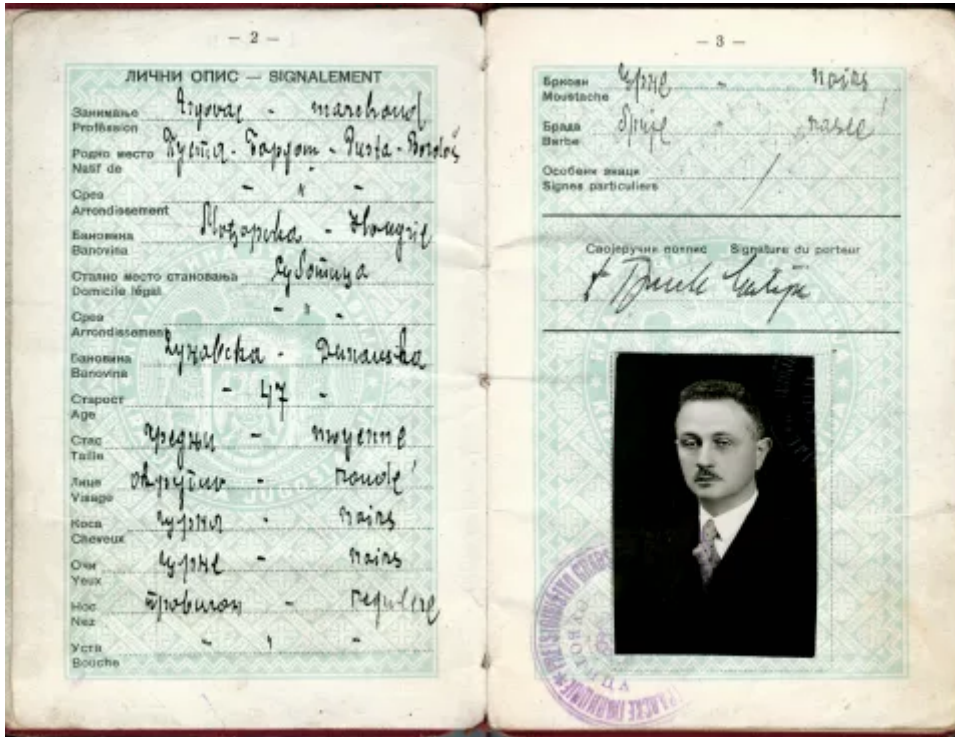 — 2 —
ЛИЧНИ ОПИС — SIGNALEMENT
Занимање
Profession
marchand
Родно место
Natif de
Пуста - - Pusta -
Срез
Arrondissement
- " -
Бановина
Banovina
- Hongrie
Стално место становања
Domicile légal
Суботица
Срез
Arrondissement
- " -
Бановина
Banovina
Дунавска - Dunavska
Старост
Age
- 47 -
Стас
Taille
средњи - moyenne
Лице
Visage
- rondé
Коса
Cheveux
црна - noirs
Очи
Yeux
црне - noirs
Нос
Nez
правилан -
Уста
Bouche
- " -
— 3 —
Бркови
Moustache
црне - noirs
Брада
Barbe
брије - rasé
Особени знаци
Signes particuliers
/
Својеручни потпис Signature du porteur